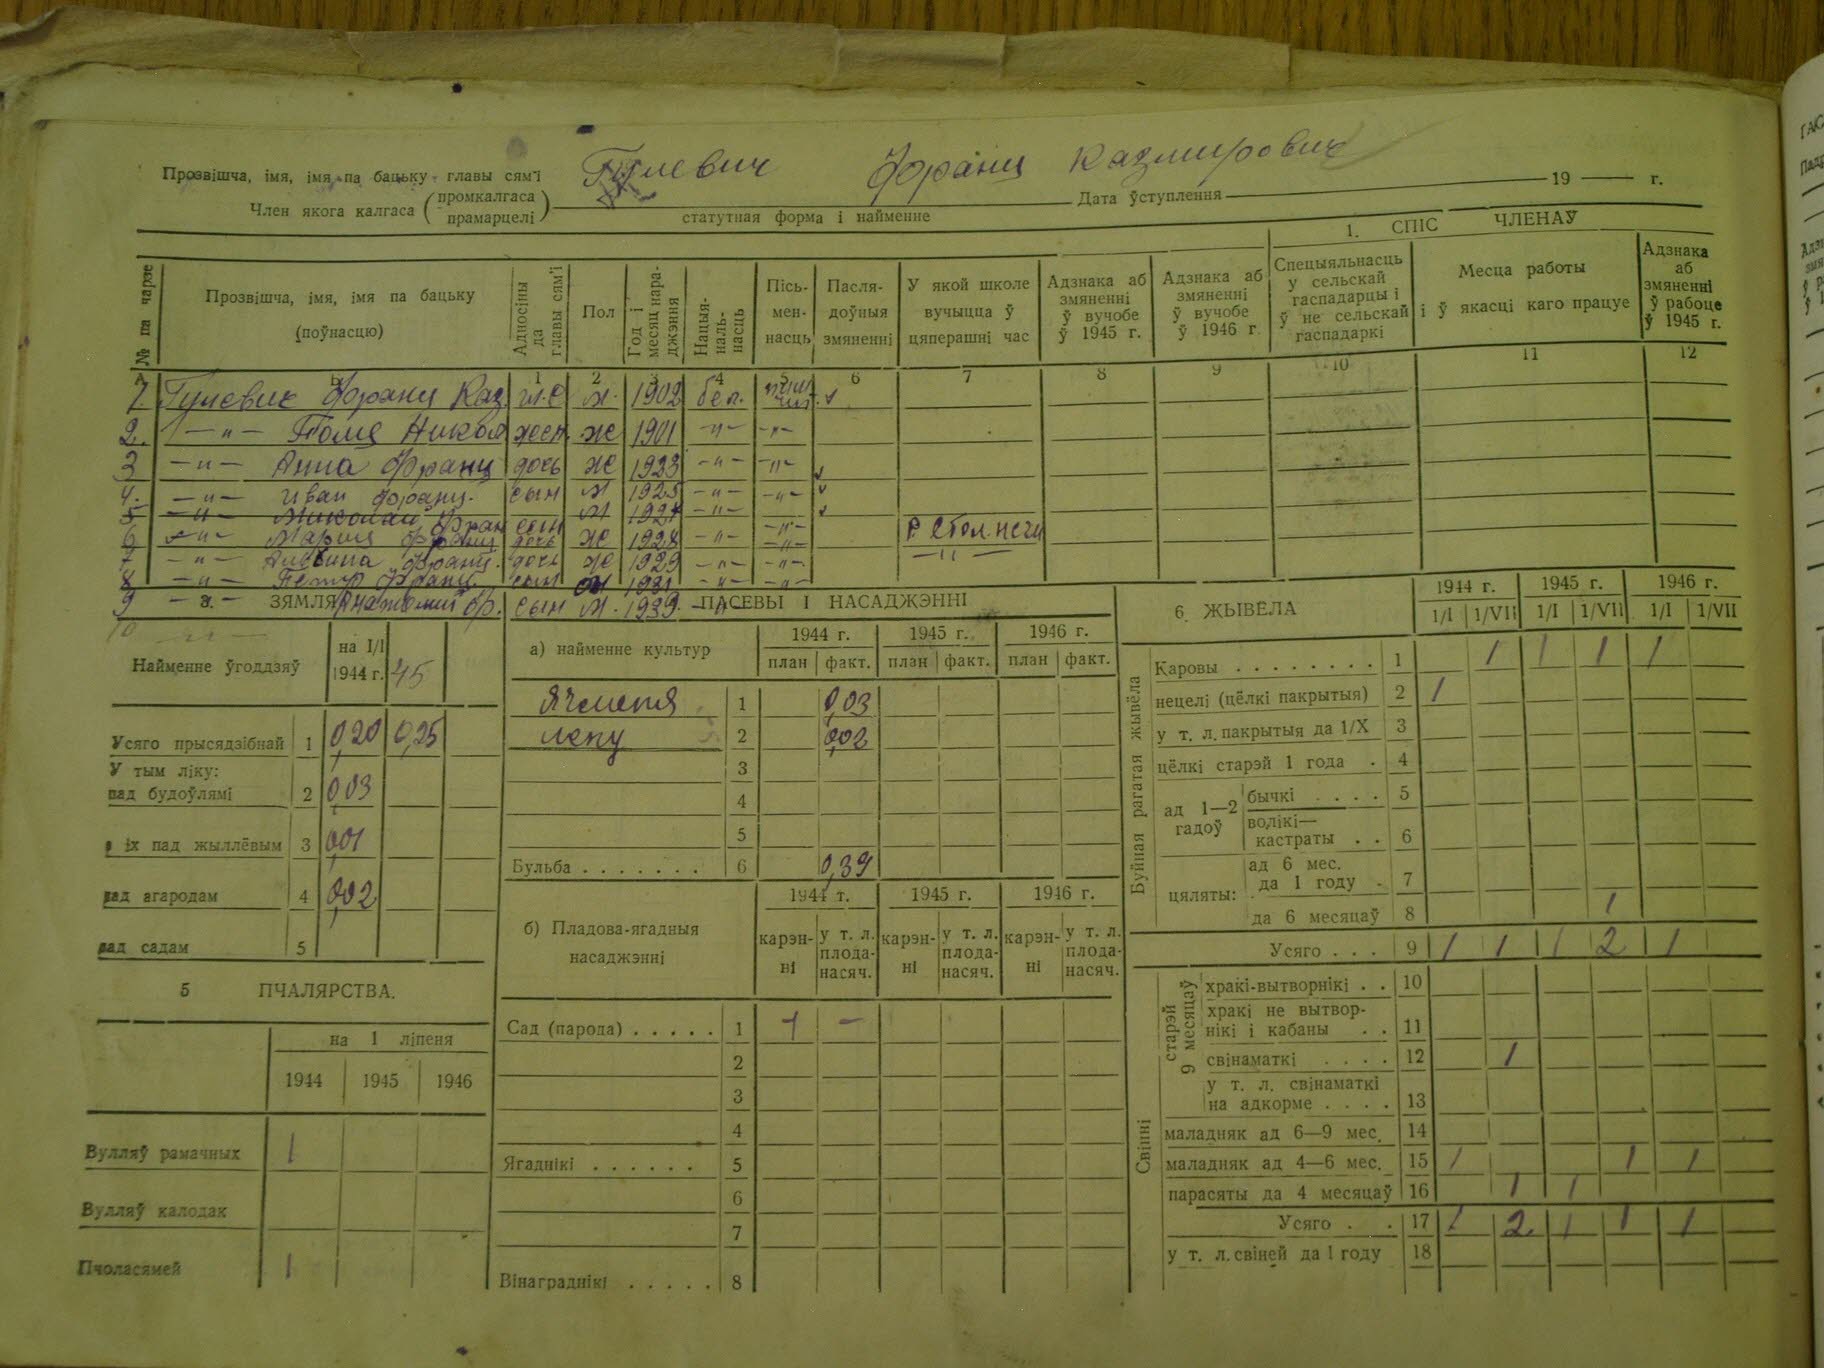 Прозвішча, імя, імя па бацьку главы сям'і Гулевич Франц Казмирович
Член якога калгаса (промкалгаса прамарцелі)
статутная форма і найменне
Дата ўступлення 19 г.
1. СПІС ЧЛЕНАЎ
№ па чарзе
Прозвішча, імя, імя па бацьку (поўнасцю)
Адносіны да главы сям'і
Пол
Год і месяц нараджэння
Нацыянальнасць
Пісьменнасць
Паслядоўныя змяненні
У якой школе вучыцца ў цяперашні час
Адзнака аб змяненні ў вучобе ў 1945 г.
Адзнака аб змяненні ў вучобе ў 1946 г
Спецыяльнасць у сельскай гаспадарцы і ў не сельскай гаспадаркі
Месца работы і ў якасці каго працуе
Адзнака аб змяненні ў рабоце ў 1945 г.
1 2 3 4 5 6 7 8 9 10 11 12
1 Гулевич Франц Каз. гл.с м. 1902 бел.
2. —"— Никол жен. ж 1901 —"— —"—
3 —"— Анна Франц дочь ж 1923 —"— —"—
4. —"— Иван Франц. сын м 1925 —"— —"—
5 —"— Николай Фран сын м 1927 —"—
6 —"— Мария Франц дочь ж 1928 —"— —"—
7 —"— Альбина Франц. дочь ж 1929 —"— —"— —"—
8 —"— Петр Франц. сын м 1931 —"— —"—
9 Анатолий Фр. сын м. 1939. —"—
10 —"—
ЗЯМЛЯ
Найменне ўгоддзяў на 1/I 1944 г. 45
Усяго прысядзібнай 1 0,20 0,25
У тым ліку:
пад будоўлямі 2 0,03
з іх пад жыллёвым 3 0,01
пад агародам 4 0,02
пад садам 5
5 ПЧАЛЯРСТВА.
на 1 ліпеня
1944 1945 1946
Вулляў рамачных 1
Вулляў калодак
Пчоласямей 1
ПАСЕВЫ І НАСАДЖЭННІ
а) найменне культур
1944 г. 1945 г. 1946 г.
план факт. план факт. план факт.
ячменя 1 0,03
2 0,02
3
4
5
Бульба 6 0,39
б) Пладова-ягадныя насаджэнні
1944 г. 1945 г. 1946 г.
карэнні у т. л. плоданасяч. карэнні у т. л. плоданасяч. карэнні у т. л. плоданасяч.
Сад (парода) 1 1 —
2
3
4
Ягаднікі 5
6
7
Вінаграднікі 8
6. ЖЫВЁЛА
1944 г. 1945 г. 1946 г.
1/I 1/VII 1/I 1/VII 1/I 1/VII
Буйная рагатая жывёла
Каровы 1 1 1 1 1
нецелі (цёлкі пакрытыя) 2 1
у т. л. пакрытыя да 1/X 3
цёлкі старэй 1 года 4
ад 1—2 гадоў
бычкі 5
волікі—кастраты 6
цяляты:
ад 6 мес. да 1 году 7
да 6 месяцаў 8 1
Усяго 9 1 1 1 2 1
Свінні
старэй 9 месяцаў
хракі-вытворнікі 10
хракі не вытворнікі і кабаны 11
свінаматкі 12 1
у т. л. свінаматкі на адкорме 13
маладняк ад 6—9 мес. 14
маладняк ад 4—6 мес. 15 1 1 1
парасяты да 4 месяцаў 16 1 1
Усяго 17 1 2 1 1 1
у т. л. свіней да 1 году 18